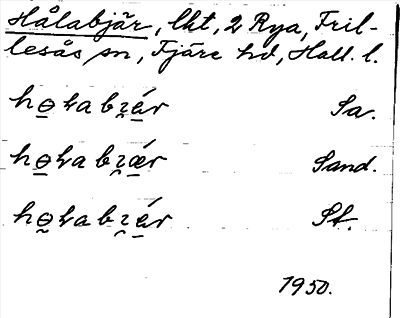 Hålabjär, lkt, 2 Rya, Fril-
lesås sn, Fjäre hd, Hall. l.
hɵ̠ɬabɀ̠ǽr Sa.
hɵ̠ɬabɀ̠ǽr Sand.
hɵ̠ɬabɀ̠ǽr St.
1950.